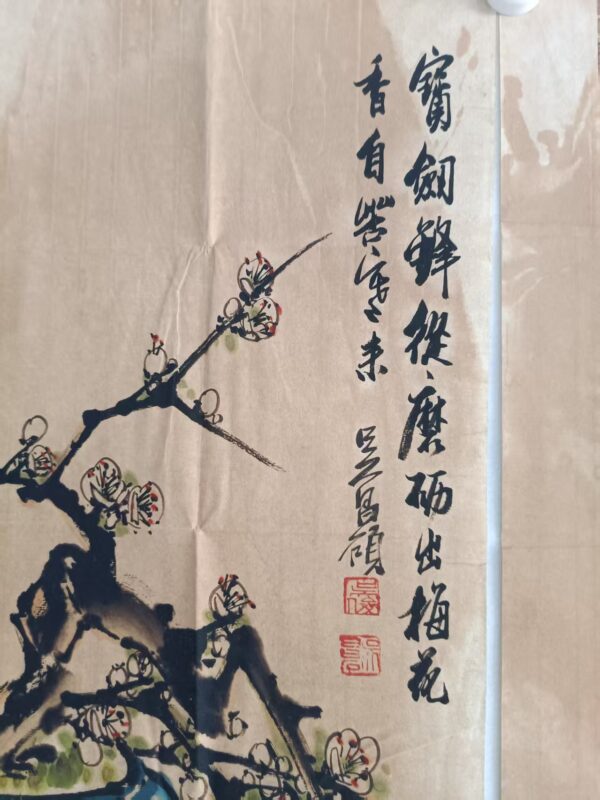 寶劍鋒從磨砺出梅花
香自苦寒來
吳昌碩